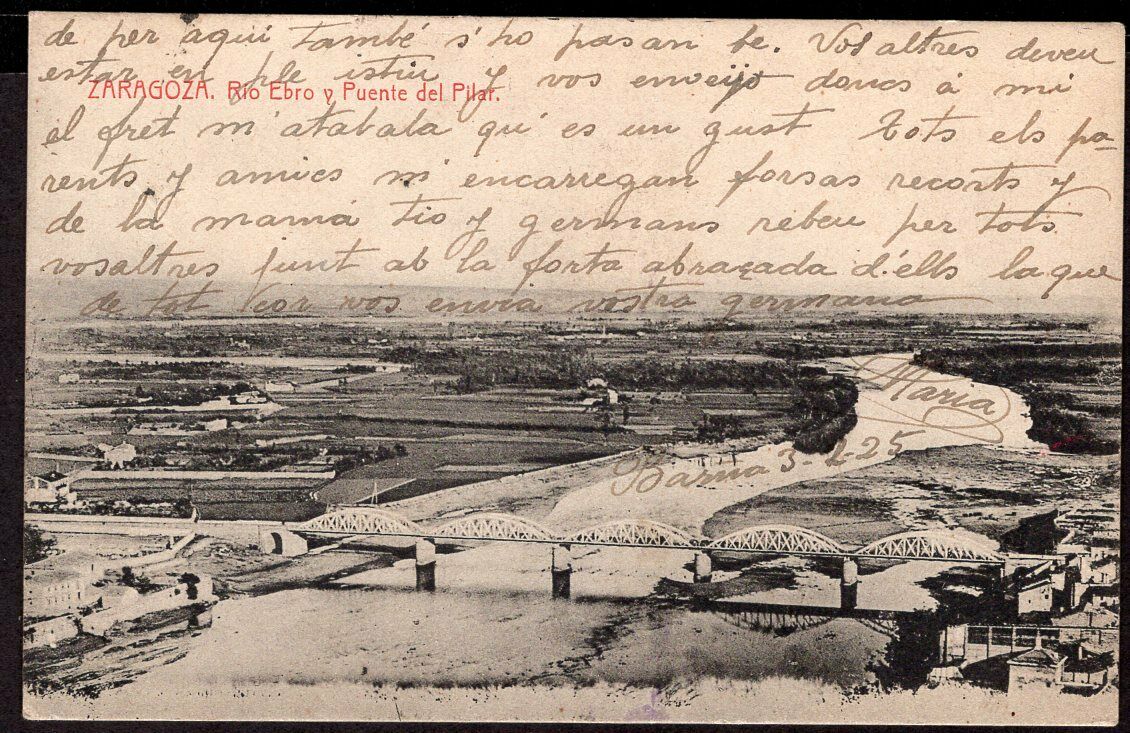 de per aquí també s'ho pasan be. Vosaltres deveu
estar en ple istiu y vos enveijo doncs á mi
ZARAGOZA. Río Ebro y Puente del Pilar.
el fret m'atabala qu' es un gust Tots els pa-
rents y amics m' encarregan forsas recorts y
de la mamá tio y germans rebeu per tots
vosaltres junt ab la forta abraçada d'ells la que
de tot cor vos envia vostra germana
Maria
Barna 3-2-25